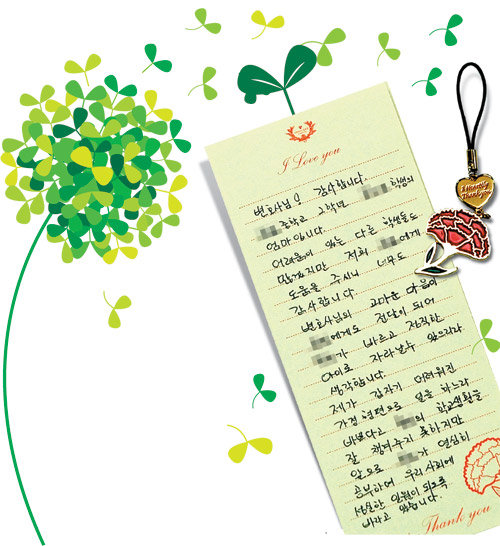 I Love you
변호사님! 감사합니다.
중학교 2학년 학생의
엄마입니다.
어려움이 있는 다른 학생들도
많겠지만 저희 에게
도움을 주시니 너무도
감사합니다
변호사님의 고마운 마음이
에게도 전달이 되어
가 바르고 정직한
아이로 자라날수 있으리라
생각합니다.
제가 갑자기 어려워진
가정형편으로 일을 하느라
바쁘다고 의 학교생활을
잘 챙겨주지 못하지만
앞으로 가 열심히
공부하여 우리 사회에
성실한 일원이 되도록
바라고 있습니다.
Thank you
Sincerely
Thank you